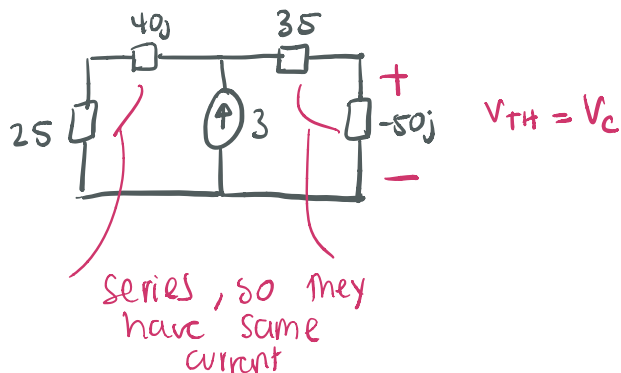 40j
35
25
3
-50j
+
V_TH = V_C
−
series, so they
have same
current